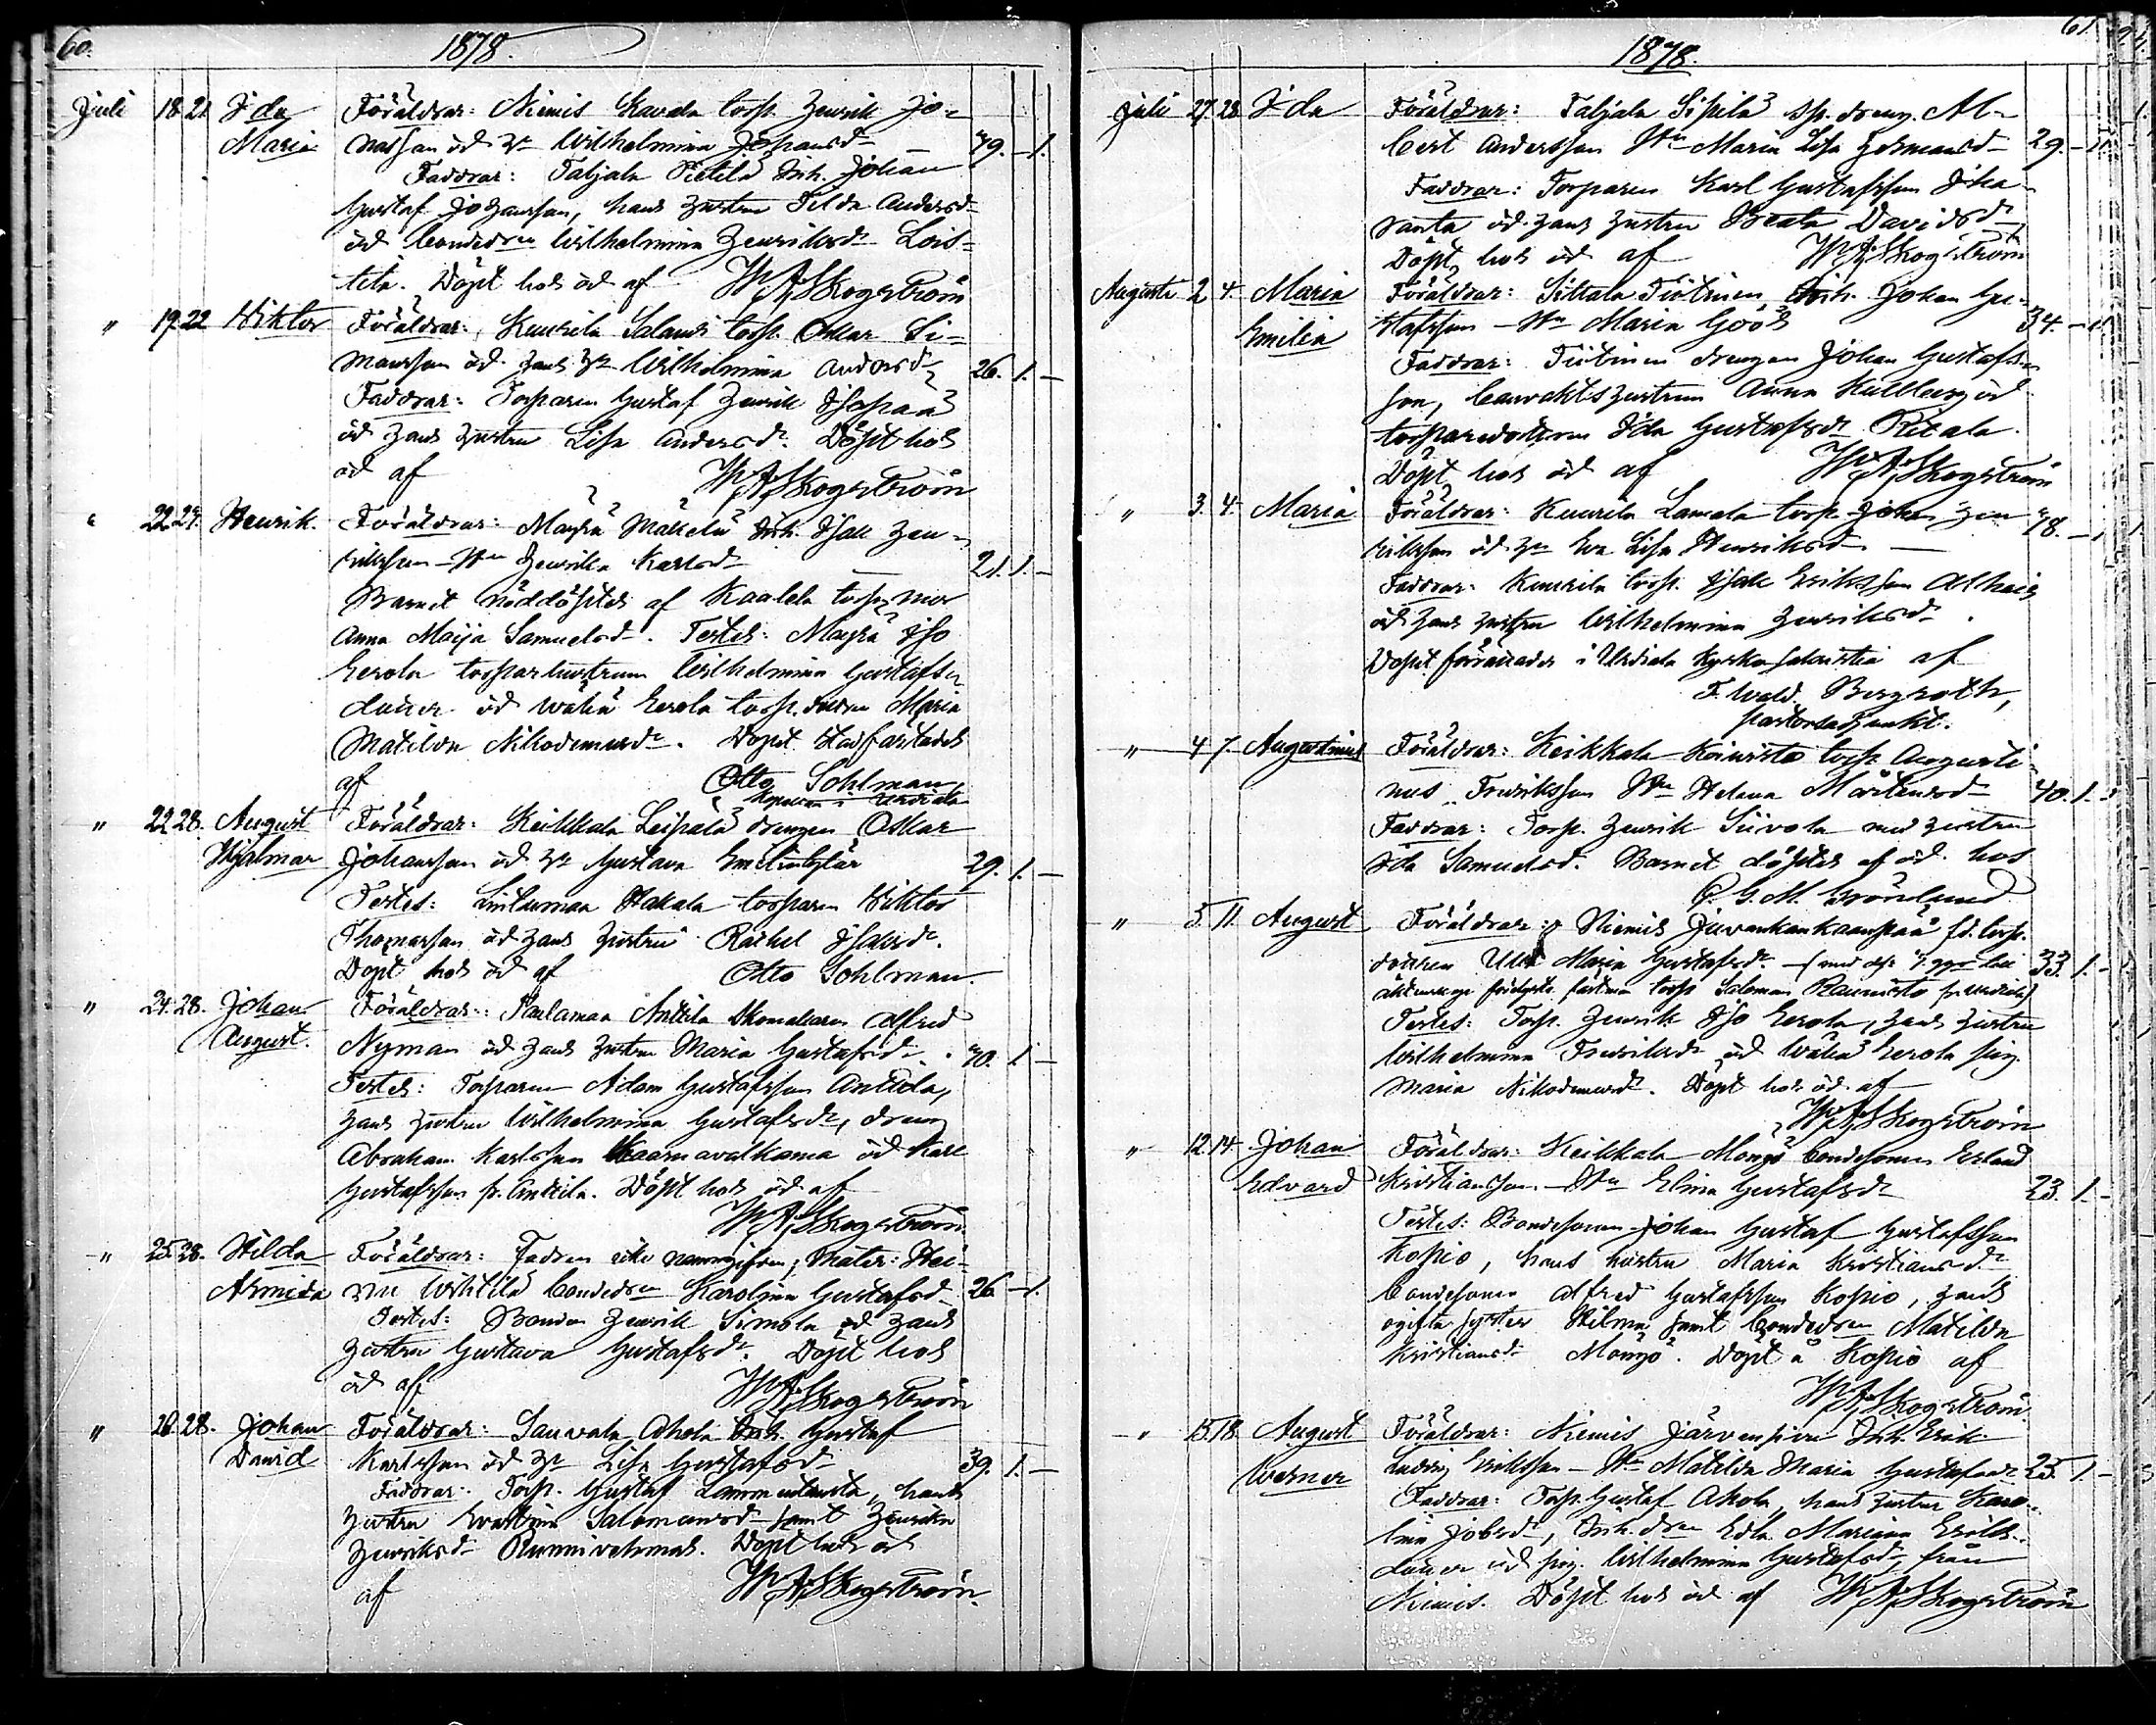 60.
1878.
Juli 18 21 Ida Föräldrar: Niemis Kavala torp. Henrik Jo-
Maria nasson och h. Wilhelmina Johansdr 49. — 1.
Faddrar: Taljala Pietilä Inh. Johan
Gustaf Johansson, hans hustru Tilda Andersdr
och bondedr Wilhelmina Henriksdr Lois-
tela. Döpt hos och af W. A. Skogström
" 19 22 Wiktor Föräldrar: Kuurila Salausi torp. Oskar Si-
monsson och hans h. Wilhelmina Andersdr 26. 1. —
Faddrar: Torparen Gustaf Henrik Isopää
och hans hustru Lisa Andersdr. Döpt hos
och af W. A. Skogström
" 22 24. Henrik. Föräldrar: Mäkelä Inh. Isak Hen-
riksson - Hu Henrika Karlsdr 21. 1. —
Barnet nöddöptes af Kaalela torp. mor
Anna Maija Samuelsdr. Testes: Iso
Eerola torparhustrun Wilhelmina Gustafs-
dotter och Wähä Eerola torp. dottren Maria
Matilda Nikodemusdr. Dopet stadfästades
af Otto Sohlman
Kapellan i Urdiala
" 22 28. August Föräldrar: Keikkala Leipälä drengen Oskar
Hjalmar Johansson och h. Gustava 29. 1. —
Testes: Lintumaa Hakala torparen Wiktor
Thomasson och hans hustru Rachel Isaksdr.
Döpt hos och af Otto Sohlman.
" 24. 28. Johan Föräldrar: Paulamaa Anttila Skomakaren Alfred
August. Nyman och hans hustru Maria Gustafsdr. 40. 1. —
Testes: Torparen Adam Gustafsson Anttila,
hans hustru Wilhelmina Gustafsdr, dreng
Abraham Karlsson och Karl
Gustafsson fr. Anttila. Döpt hos och af
W. A. Skogström.
" 25. 28. Hilda Föräldrar: Fadren icke namngifven; Mater: Hei-
Armida nu Uotila bondedr Karolina Gustafsd. 26 — 1.
Testes: Bonden Henrik Simola och hans
hustru Gustava Gustafsdr. Döpt hos
och af W. A. Skogström
" 28. Johan Föräldrar: Sauvala Ahola Inh. Gustaf
David Karlsson och h. Lisa Gustafsdr 39. 1. —
Faddrar: Torp. Gustaf Lammintausta, hans
hustru Eva Stina Salomonsdr samt Henrika
Henriksd. Döpt hos och
af W. A. Skogström.
61
1878.
Juli 27 28 Ida Föräldrar: Taljala Sipilä dreng. Al-
bert Andersson Hu Maria Lisa Hermansd 29. — 1.
Faddrar: Torparen Karl Gustafsson Iha-
santa och hans hustru Beata Davidsdr
Döpt hos och af W. A. Skogström
Augusti 2 4. Maria Föräldrar: Sittala Tiitinen Inh. Johan Gu-
Emilia stafsson - Hu Maria Göös 34. — 1.
Faddrar: Tiitinen drengen Johan Gustafs-
son, banvaktshustrun Anna Kullberg och
torparedottren Ida Gustafsdr Ritala.
Döpt hos och af W. A. Skogström
" 3. 4. Maria Föräldrar: Kuurila Lamala torp. Johan Hen- 48. — 1.
riksson och h. Eva Lisa Henriksd. —
Faddrar: Kuurila torp. Isak Eriksson Alhais
och hans hustru Wilhelmina Henriksdr.
Dopet förrättades i Urdiala Kyrko sakristia af
F. Wald. Bergroth,
pastorsadjunkt.
" 4 7. Augustinus Föräldrar: Keikkala Koivisto torp. Augusti-
nus Fredriksson Hu Helena Mårtensdr 40. 1. —
Faddrar: Torp. Henrik Siivola med hustru
Ida Samuelsd. Barnet döptes af och hos
C. G. M. Grönlund
" 5. 11. August Föräldrar: Niemis Juvankankaanpää fd. torp.
dottren Ulla Maria Gustafsdr 33. 1. —
torp. Salomon Raunisto fr. Urdiala)
Testes: Torp. Henrik Iso Eerola, hans hustru
Wilhelmina Fredriksdr och Wähä Eerola pig.
Maria Nikodemusdr. Döpt hos och af
W. A. Skogström
" 12. 14. Johan Föräldrar: Keikkala Monjo bondesonen Erland
Edvard Kristiansson. - Hu Elina Gustafsdr 23. 1. —
Testes: Bondesonen Johan Gustaf Gustafsson
Kopio, hans hustru Maria Kristiansdr
bondesonen Alfred Gustafsson Kopio, hans
ogifta syster Hilma samt bondedr Matilda
Kristiansdr Monjo. Döpt å Kopio af
W. A. Skogström
" 15. 18. August Föräldrar: Niemis Järvensivu Inh. Erik
Werner Ludvig Eriksson - Hu Matilda Maria Gustafsdr 25. 1. —
Faddrar: Torp. Gustaf Ahola, hans hustru Karo-
lina Jobsdr, Inh. dr Edla Mariana Eriks-
dotter och pig. Wilhelmina Gustafsdr från
Niemis. Döpt hos och af W. A. Skogström